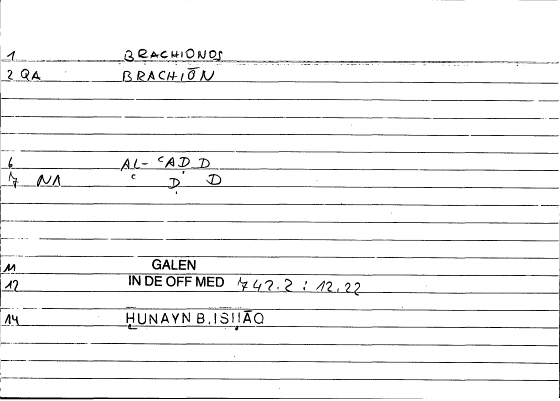 1 BRACHIONOS
2 QA BRACHIŌN
6 AL- ʿAḌ D
7 NA ʿ Ḍ D
11 GALEN
12 IN DE OFF MED 742.2 : 12.22
14 ḤUNAYN B. ISḤĀQ